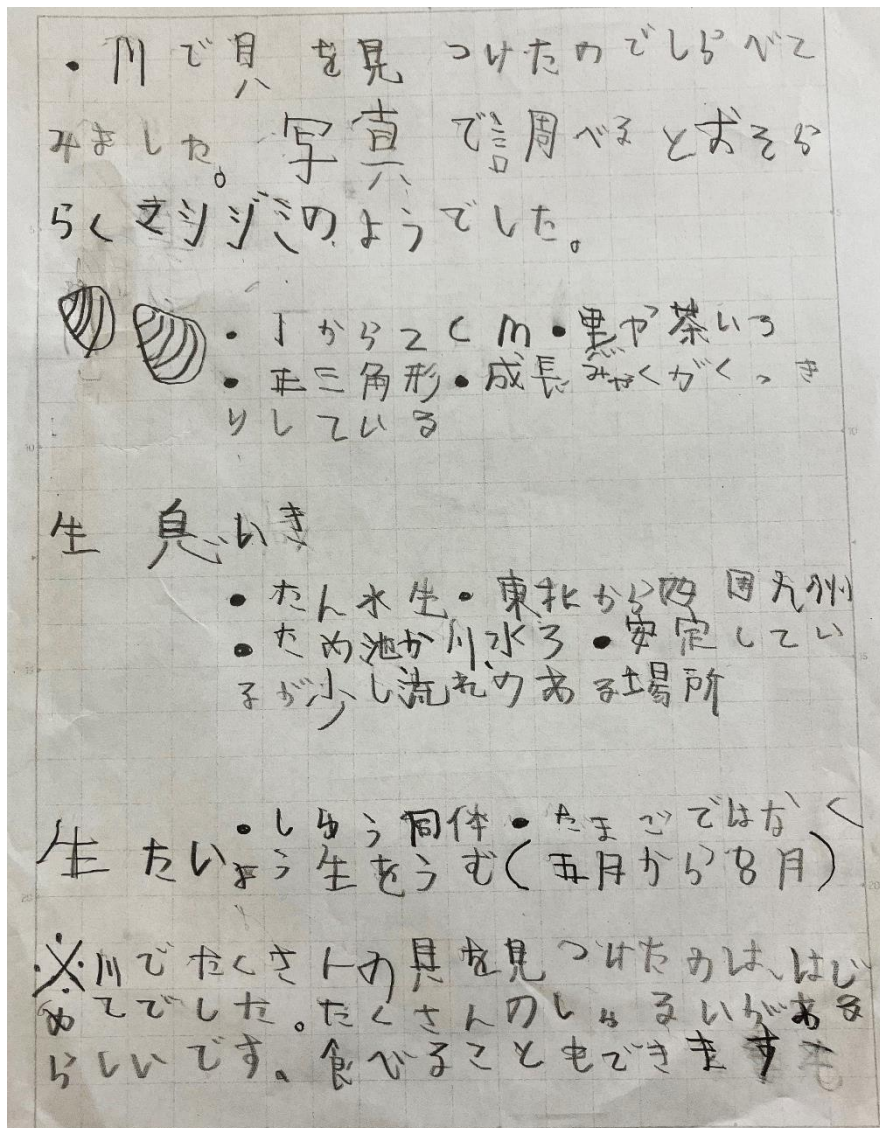 ・川で貝を見つけたのでしらべて
みました。写真で調べるとおそら
らくマシジミのようでした。
・1から2cm・黒や茶いろ
・正三角形・成長みゃくがくっき
りしている
生息いき
・たん水生・東北から四国九州
・ため池か川、水ろ・安定してい
るが少し流れのある場所
・しゆう同体・たまごではなく
生たい よう生をうむ(五月から8月)
※川でたくさんの貝を見つけたのは、はじ
めてでした。たくさんのしゅるいがある
らしいです。食べることもできます